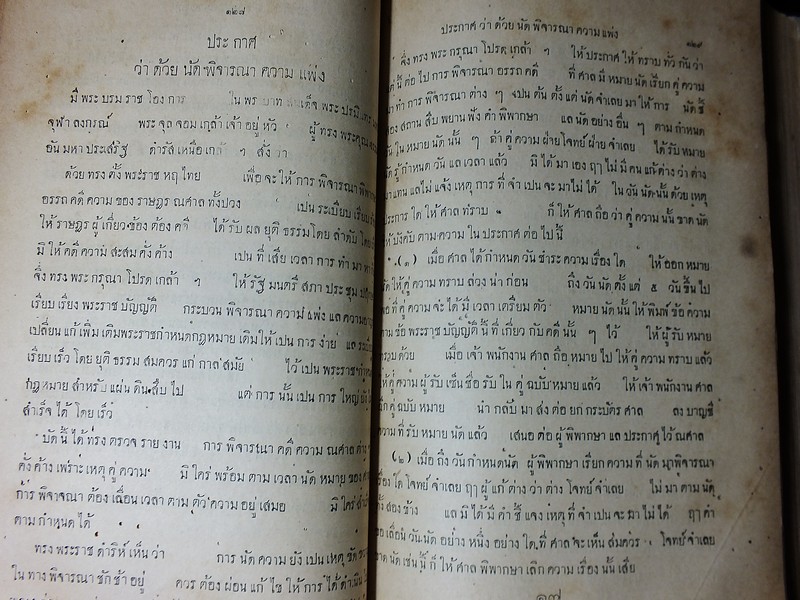 ๑๒๗
ประกาศ
ว่า ด้วย นัด พิจารณา ความ แพ่ง
มี พระ บรม ราช โอง การ ใน พระ บาท สมเด็จ พระ ปรมินทร
จุฬา ลงกรณ์ พระ จุล จอม เกล้า เจ้า อยู่ หัว ผู้ ทรง พระ คุณ
อัน มหา ประเสริฐ ดำรัส เหนือ เกล้า ฯ สั่ง ว่า
ด้วย ทรง ตั้ง พระราช หฤไทย เพื่อ จะ ให้ การ พิจารณา พิพาก
อรรถ คดี ความ ของ ราษฎร ณศาล ทั้งปวง เปน ระเบียบ เรียบ
ให้ ราษฎร ผู้ เกี่ยว ข้อง ต้อง คดี ได้ รับ ผล ยุติ ธรรม โดย ลำดับ
มิ ให้ คดี ความ สะสม คั่ง ค้าง เปน ที่ เสีย เวลา การ ทำ มา หา
จึ่ง ทรง พระ กรุณา โปรด เกล้า ฯ ให้ รัฐ มนตรี สภา ประชุม ปฤกษา
เรียบ เรียง พระราช บัญญัติ กระบวน พิจารณา ความ แพ่ง แล ความ
เปลี่ยน แก้ เพิ่ม เติม พระราชกำหนดกฎหมาย เดิม ให้ เปน การ ง่าย แล
เรียบ เร็ว โดย ยุติ ธรรม สมควร แก่ กาล สมัย ไว้ เปน พระราช กำหนด
กฎหมาย สำหรับ แผ่น ดิน สืบ ไป แต่ การ นั้น เปน การ ใหญ่ ยัง
สำเร็จ ได้ โดย เร็ว
บัด นี้ ได้ ทรง ตรวจ ราย งาน การ พิจารณา คดี ความ ณศาล ต่าง
คั่ง ค้าง เพราะ เหตุ คู่ ความ มิ ใคร่ พร้อม ตาม เวลา นัด หมาย ของ
การ พิจารณา ต้อง เลื่อน เวลา ตาม ตัว ความ อยู่ เสมอ มิ ใคร่
ตาม กำหนด ได้
ทรง พระราช ดำริห์ เห็น ว่า การ นัด ความ ยัง เปน เหตุ ขัด
ใน ทาง พิจารณา ชัก ช้า อยู่ ควร ต้อง ผ่อน แก้ ไข ให้ การ ได้ ดำเนิน
ประกาศ ว่า ด้วย นัด พิจารณา ความ แพ่ง
จึ่ง ทรง พระ กรุณา โปรด เกล้า ฯ ให้ ประกาศ ให้ ทราบ ทั่ว กัน ว่า
นี้ ต่อ ไป การ พิจารณา อรรถ คดี ที่ ศาล มี หมาย นัด เรียก คู่ ความ
ทำ การ พิจารณา ต่าง ๆ เปน ต้น ตั้ง แต่ นัด จำเลย มา ให้ การ นัด ชี้
สอง สถาน สืบ พยาน ฟัง คำ พิพากษา แล นัด อย่าง อื่น ๆ ตาม กำหนด
ใน หมาย นัด นั้น ๆ ถ้า คู่ ความ ฝ่าย โจทย์ ฝ่าย จำเลย ได้ รับ หมาย
นัด รู้ กำหนด วัน แล เวลา แล้ว มิ ได้ มา เอง ฤๅ ไม่ มี คน แก้ ต่าง ว่า ต่าง
มา แทน แล ไม่ แจ้ง เหตุ การ ที่ จำ เปน จะ มา ไม่ ได้ ใน วัน นัด นั้น ด้วย เหตุ
ประการ ใด ให้ ศาล ทราบ ก็ ให้ ศาล ถือ ว่า คู่ ความ นั้น ขาด นัด
ให้ บังคับ ตาม ความ ใน ประกาศ ต่อ ไป นี้
(๑) เมื่อ ศาล ได้ กำหนด วัน ชำระ ความ เรื่อง ใด ให้ ออก หมาย
ให้ คู่ ความ ทราบ ล่วง น่า ก่อน ถึง วัน นัด ตั้ง แต่ ๕ วัน ขึ้น ไป
ที่ คู่ ความ จะ ได้ มี เวลา เตรียม ตัว หมาย นัด นั้น ให้ พิมพ์ ข้อ ความ
ตาม ข้อ พระราช บัญญัติ นี้ ที่ เกี่ยว กับ คดี นั้น ๆ ไว้ ให้ ผู้ รับ หมาย
ทราบ ด้วย เมื่อ เจ้า พนักงาน ศาล ถือ หมาย ไป ให้ คู่ ความ ทราบ แล้ว
ให้ คู่ ความ ผู้ รับ เซ็น ชื่อ รับ ใน คู่ ฉบับ หมาย แล้ว ให้ เจ้า พนักงาน ศาล
คู่ ฉบับ หมาย นำ กลับ มา ส่ง ต่อ ยก กระบัตร ศาล ลง บาญชี
ความ ที่ รับ หมาย นัด แล้ว เสนอ ต่อ ผู้ พิพากษา แล ประกาศ ไว้ ณศาล
(๒) เมื่อ ถึง วัน กำหนด นัด ผู้ พิพากษา เรียก ความ ที่ นัด มา พิจารณา
เรื่อง ใด โจทย์ จำเลย ฤๅ ผู้ แก้ ต่าง ว่า ต่าง โจทย์ จำเลย ไม่ มา ตาม นัด
ทั้ง สอง ข้าง แล มิ ได้ มี คำ ชี้ แจง เหตุ ที่ จำ เปน จะ มา ไม่ ได้ ฤๅ คำ
ขอ เลื่อน วัน นัด อย่าง หนึ่ง อย่าง ใด ที่ ศาล จะ เห็น สมควร โจทย์ จำเลย
ขาด นัด เช่น นี้ ก็ ให้ ศาล พิพากษา เลิก ความ เรื่อง นั้น เสีย
๑๗